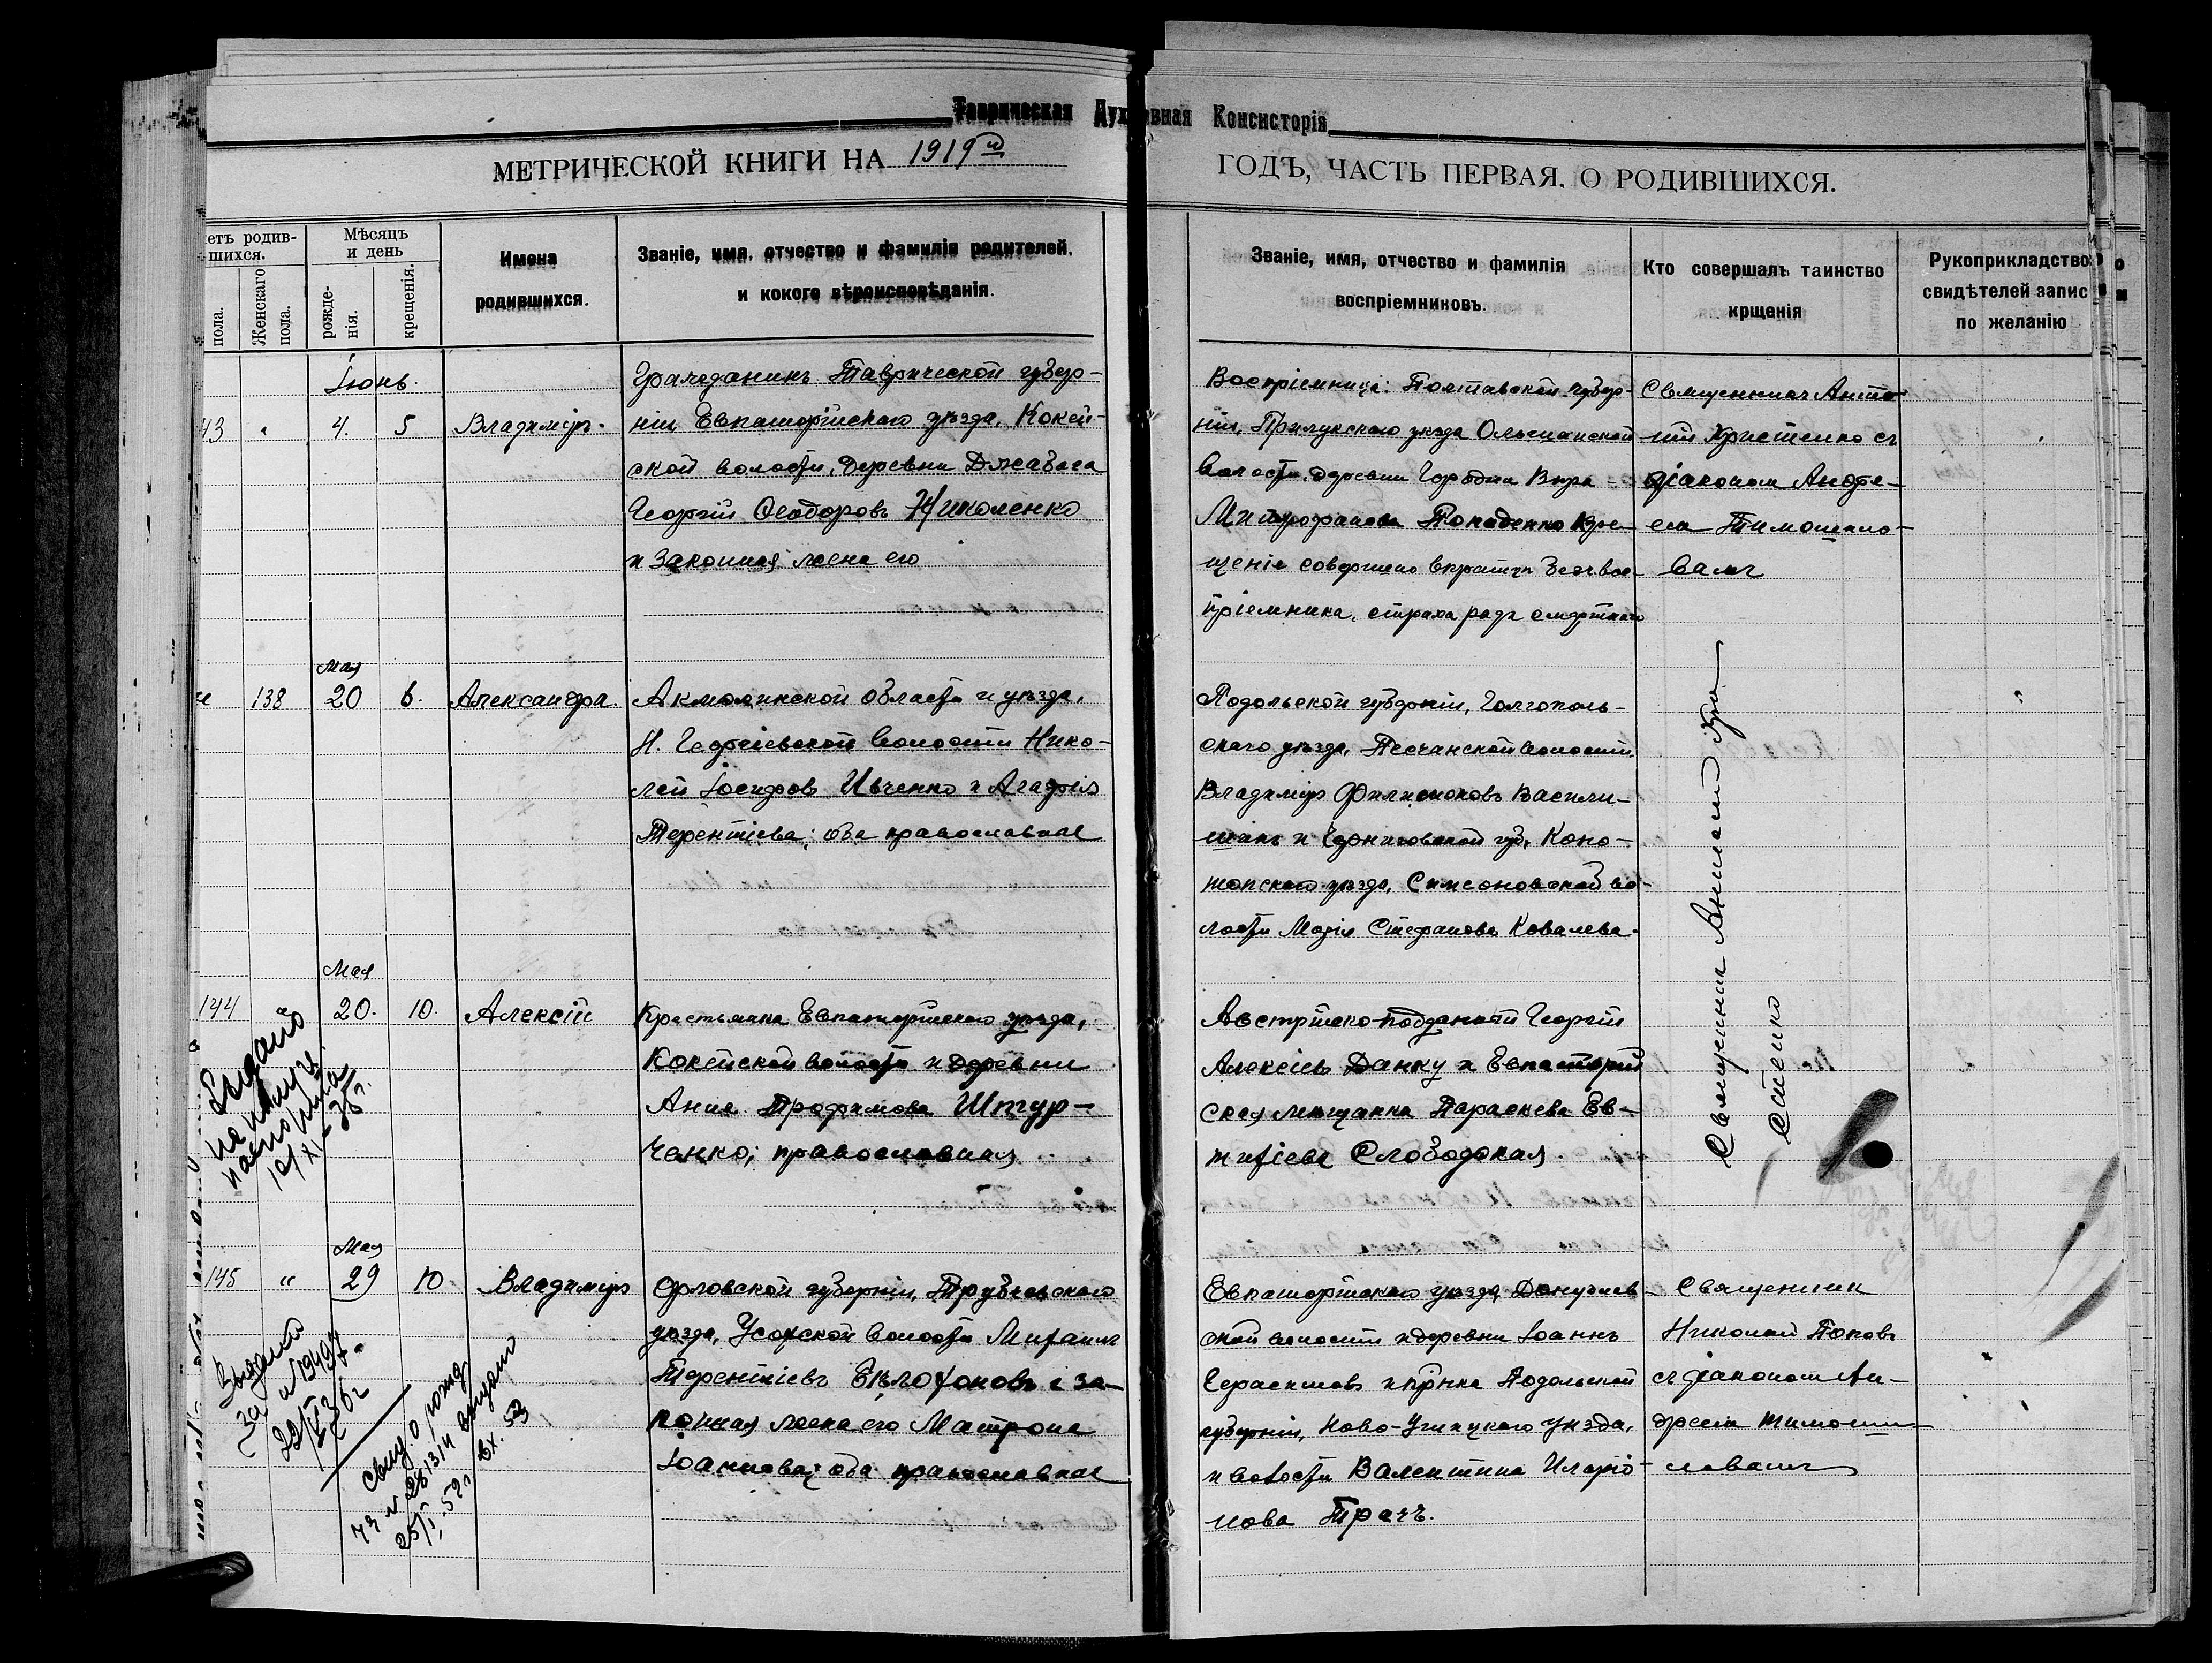 Таврическая Духовная Консисторія
МЕТРИЧЕСКОЙ КНИГИ НА 1919й ГОДЪ, ЧАСТЬ ПЕРВАЯ, О РОДИВШИХСЯ.
четъ родив-
шихся.
пола.
Женскаго
пола.
Мѣсяцъ
и день
рожде-
нія.
крещенія.
Имена
родившихся.
Званіе, имя, отчество и фамилія родителей,
и кокого вѣроисповѣданія.
Званіе, имя, отчество и фамилія
воспріемниковъ.
Кто совершалъ таинство
крщенія
Рукоприкладство
свидѣтелей запис
по желанію
Іюнь.
43 4. 5 Владиміръ.
Гражданинъ Таврической губер-
ніи Евпаторійскаго уѣзда, Кокей-
ской волости, деревни Джабага
Георгій Ѳеодоровъ Николенко
и законная жена его
Воспріемница: Полтавской губер-
ніи, Прилукскаго уѣзда Ольшанской
волости, деревни Городни Вѣра
Митрофанова Попаденко Кре-
щеніе совершено вкратцѣ безъ вос-
пріемника, страха ради смертнаго
Священникъ Анто-
ній Христенко съ
діакономъ Андре-
емъ Тимошино-
вымъ
Мая
" 138 20 6. Александра.
Акмолинской области и уѣзда,
Н. Георгіевской волости Нико-
лай Іосифовъ Ивченко и Агафія
Терентіева; оба православные
Подольской губерніи, Голгополь-
скаго уѣзда, Песчанской волости,
Владиміръ Филимоновъ Васили-
шинъ и Черниговской губ. Коно-
топскаго уѣзда, Симеоновской во-
лости Марія Стефанова Ковалева.
Священникъ Антоній Хри-
стенко
Мая
144 " 20. 10. Алексій
Крестьянка Евпаторійскаго уѣзда,
Кокейской волости и деревни
Анна Трофимова Штур-
ченко; православная
Австрійско-подданный Георгій
Алексіевъ Данку и Евпаторій
ская мѣщанка Параскева Ев-
тихіева Слободская.
Выдано
на паспорта
10/XI-35г.
Мая
145 " 29 10 Владиміръ
Орловской губерніи, Трубчевскаго
уѣзда, Усохской волости Михаилъ
Терентіевъ Евлохоновъ и за-
конная жена его Матрона
Іоаннова; оба православные
Евпаторійскаго уѣзда, Донузлав-
ской волости и деревни Іоаннъ
Герасимовъ и кр-нка Подольской
губерніи, Ново-Ушицкаго уѣзда,
и волости Валентина Иларіо-
нова Трачъ.
Священникъ
Николай Поповъ
съ діакономъ Ан-
дреемъ Тимоши-
новымъ
Выдано
за №19497
22/VI 36г
свид. о рожд
ЧЯ № 281314 выдано
25/I.52г. Вх. 53